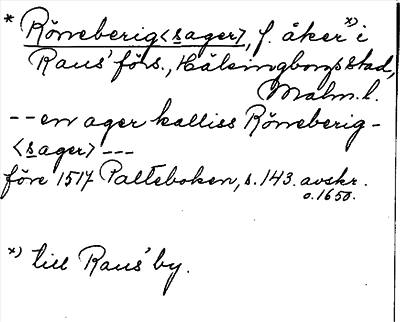 * Röneberig<sager>, f. åker *) i
Raus' förs., Hälsingborgs stad,
Malm. l.
-- en ager kalliss Röneberig-
<sager> ---
före 1517 Palteboken, s. 143. avskr.
o. 1650.
*) till Raus' by.